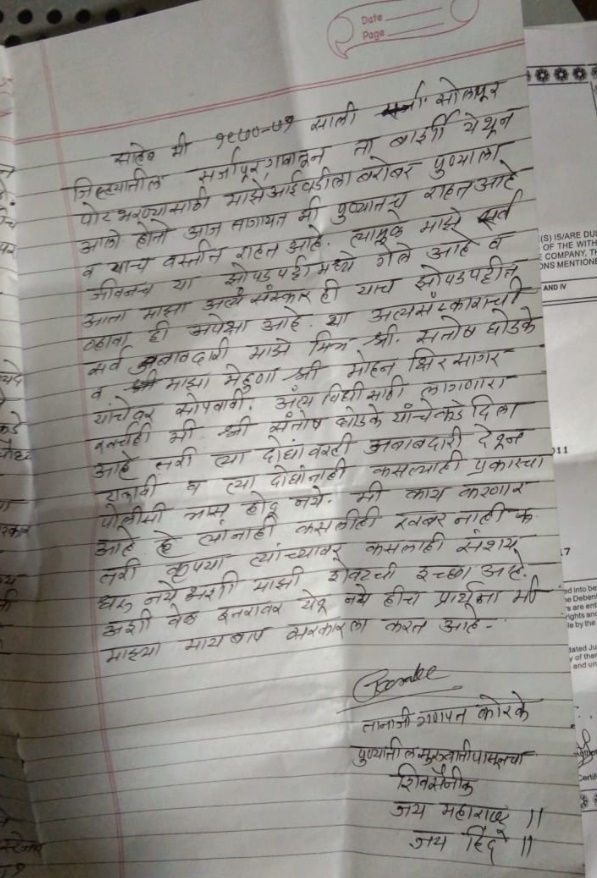 Date
Page
साहेब मी १९७०-७१ साली सोलापूर
जिल्ह्यातील सर्जापूर गावातून ता बार्शी येथून
पोट भरण्यासाठी माझे आई वडीला बरोबर पुण्याला
आलो होतो आज तागायत मी पुण्यातच राहत आहे
व याच वस्तीत राहत आहे. त्यामुळे माझे सर्व
जीवनच या झोपडपट्टी मध्ये गेले आहे व
आता माझा अंत्य संस्कार ही याच झोपडपट्टीत
व्हावा ही अपेक्षा आहे. या अंत्यसंस्काराची
सर्व जबाबदारी माझे मित्र श्री. संतोष घोडके
व माझा मेहुणा श्री मोहन क्षिरसागर
यांचेवर सोपवावी. अंत्य विधी साठी लागणारा
खर्चही मी श्री संतोष घोडके यांचेकडे दिला
आहे तरी त्या दोघांवरही जबाबदारी देवून
व त्या दोघांनाही कसल्याही प्रकारचा
पोलीसी त्रास होवू नये. मी काय करणार
आहे हे त्यांनाही कसलीही खबर नाही
तरी कृपया त्यांच्यावर कसलाही संशय
घेऊ नये अशी माझी शेवटची इच्छा आहे.
अशी वेळ इतरांवर येवू नये हीच प्रार्थना मी
माझ्या मायबाप सरकारला करत आहे -
तानाजी गणपत कोरके
पुण्यातील सुरुवातीपासूनचा
शिवसैनीक
जय महाराष्ट्र ||
जय हिंद ||
(S) IS/ARE DU
OF THE WITH
COMPANY, TH
ONS MENTIONE
AND IV
011
.7